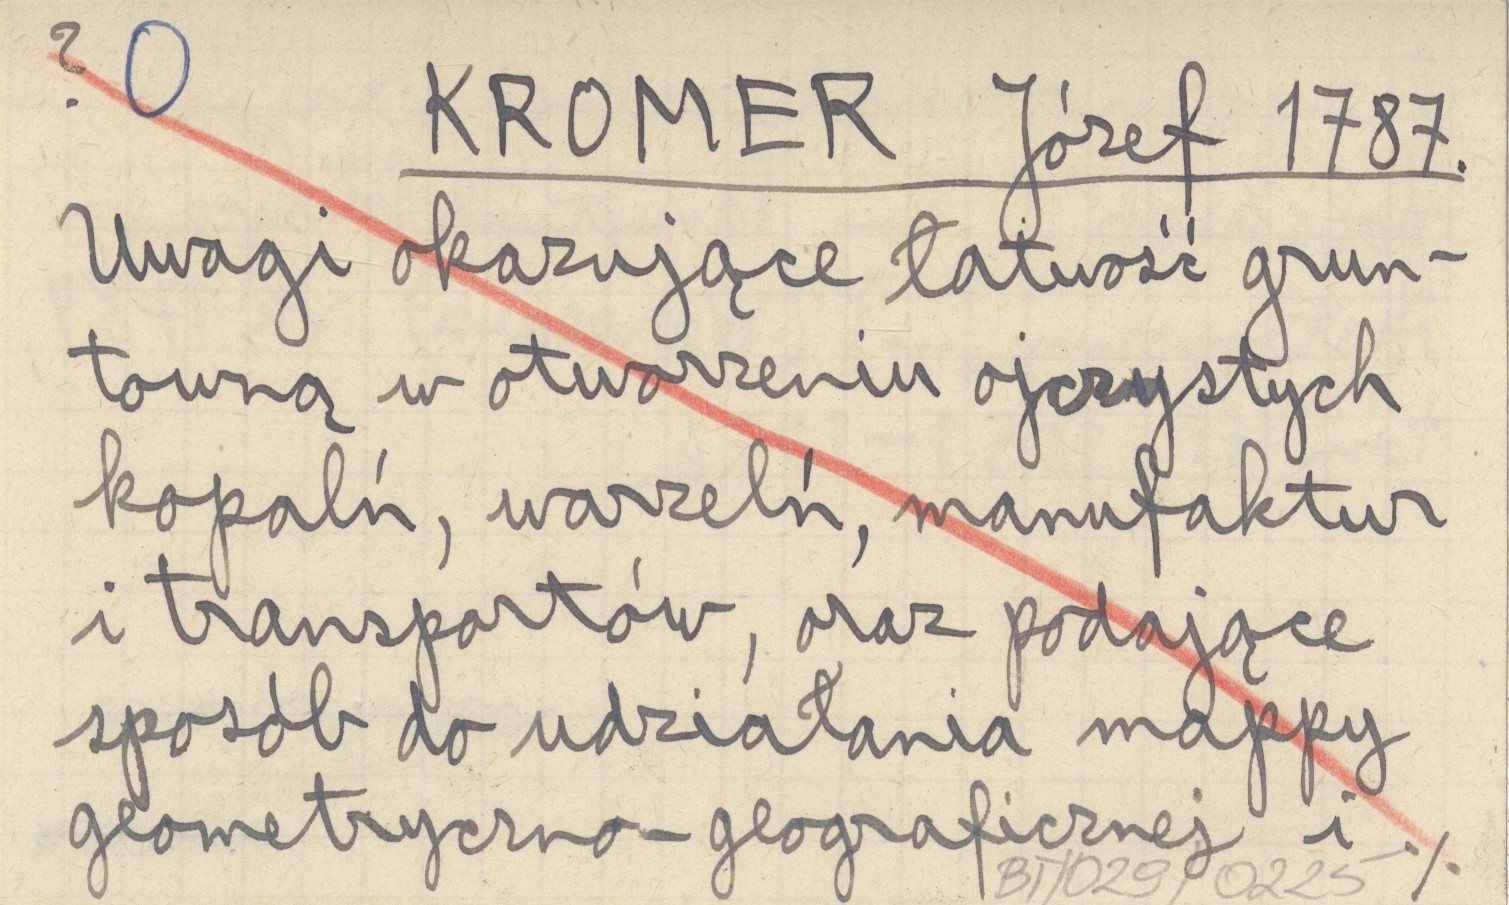 ? O
KROMER Józef 1787.
Uwagi okazujące łatwość grun-
towną w otworzeniu ojczystych
kopalń, warzelń, manufaktur
i transportów, oraz podające
sposób do udziałania mappy
geometryczno-geograficznej i ./.
BT/029/0225